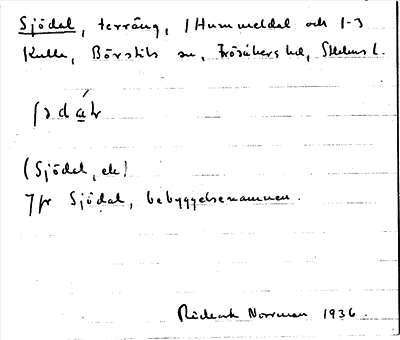 Sjödal, terräng, i Hummeldal och 1-3
Kulla, Börstils sn, Frösåkers hd, Sthlms l.
(Sjödal, ek)
Jfr Sjödal, bebyggelsenamnen.
Norrman 1936.